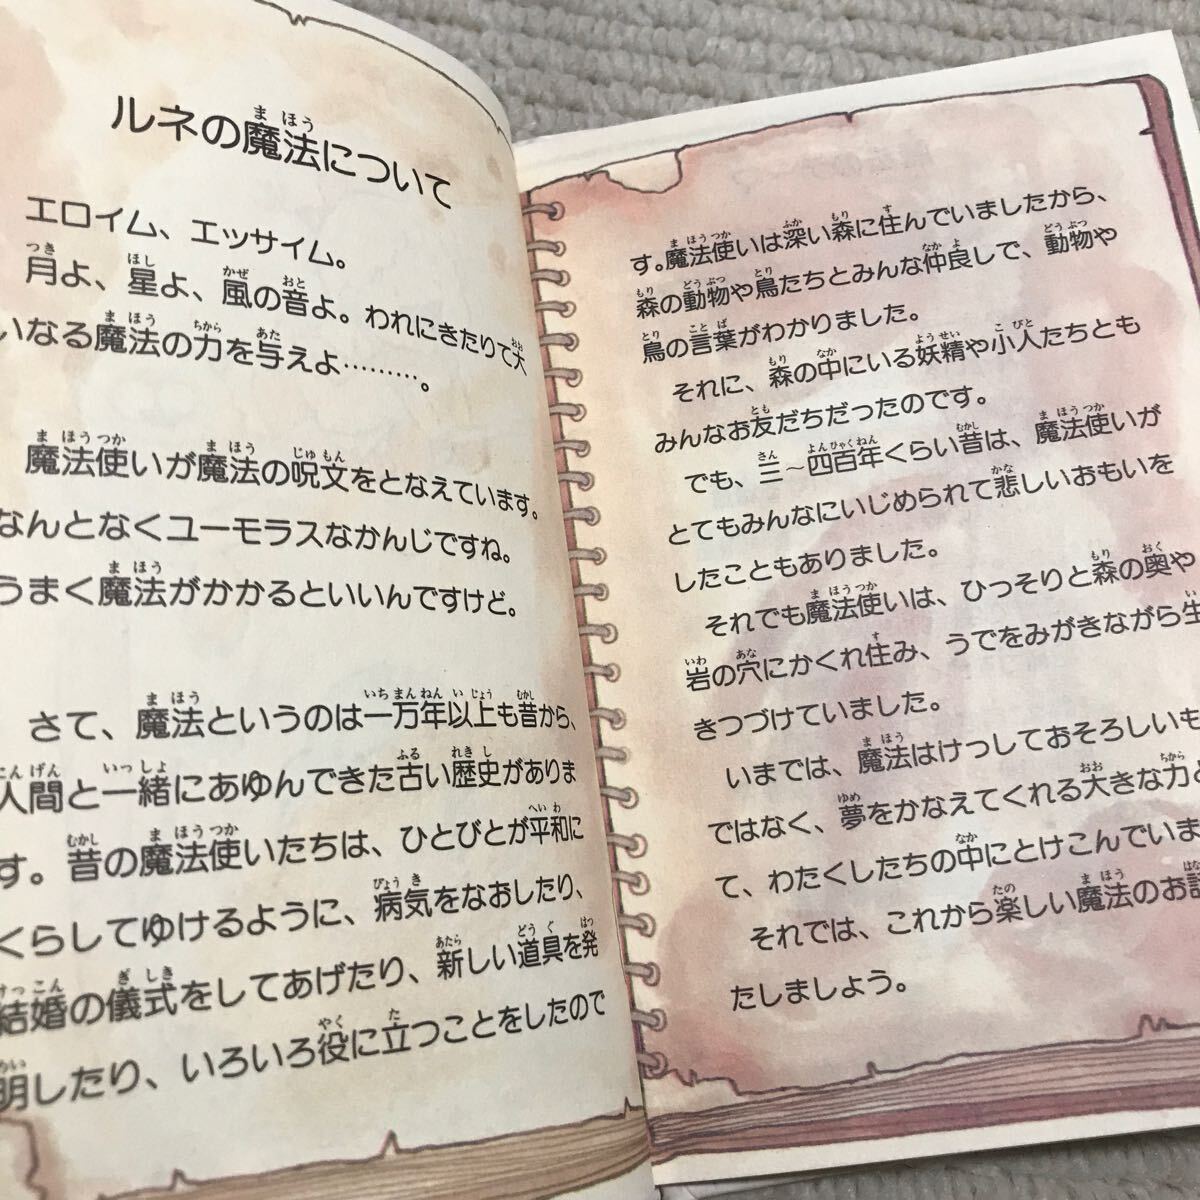 ルネの魔法について
エロイム、エッサイム。
月よ、星よ、風の音よ。われにきたりて大
いなる魔法の力を与えよ………。
魔法使いが魔法の呪文をとなえています。
なんとなくユーモラスなかんじですね。
うまく魔法がかかるといいんですけど。
さて、魔法というのは一万年以上も昔から、
人間と一緒にあゆんできた古い歴史がありま
す。昔の魔法使いたちは、ひとびとが平和に
くらしてゆけるように、病気をなおしたり、
結婚の儀式をしてあげたり、新しい道具を発
明したり、いろいろ役に立つことをしたので
す。魔法使いは深い森に住んでいましたから、
森の動物や鳥たちとみんな仲良しで、動物や
鳥の言葉がわかりました。
それに、森の中にいる妖精や小人たちとも
みんなお友だちだったのです。
でも、三～四百年くらい昔は、魔法使いが
とてもみんなにいじめられて悲しいおもいを
したこともありました。
それでも魔法使いは、ひっそりと森の奥や
岩の穴にかくれ住み、うでをみがきながら生
きつづけていました。
いまでは、魔法はけっしておそろしいも
ではなく、夢をかなえてくれる大きな力と
て、わたくしたちの中にとけこんでいま
それでは、これから楽しい魔法のお話
たしましょう。